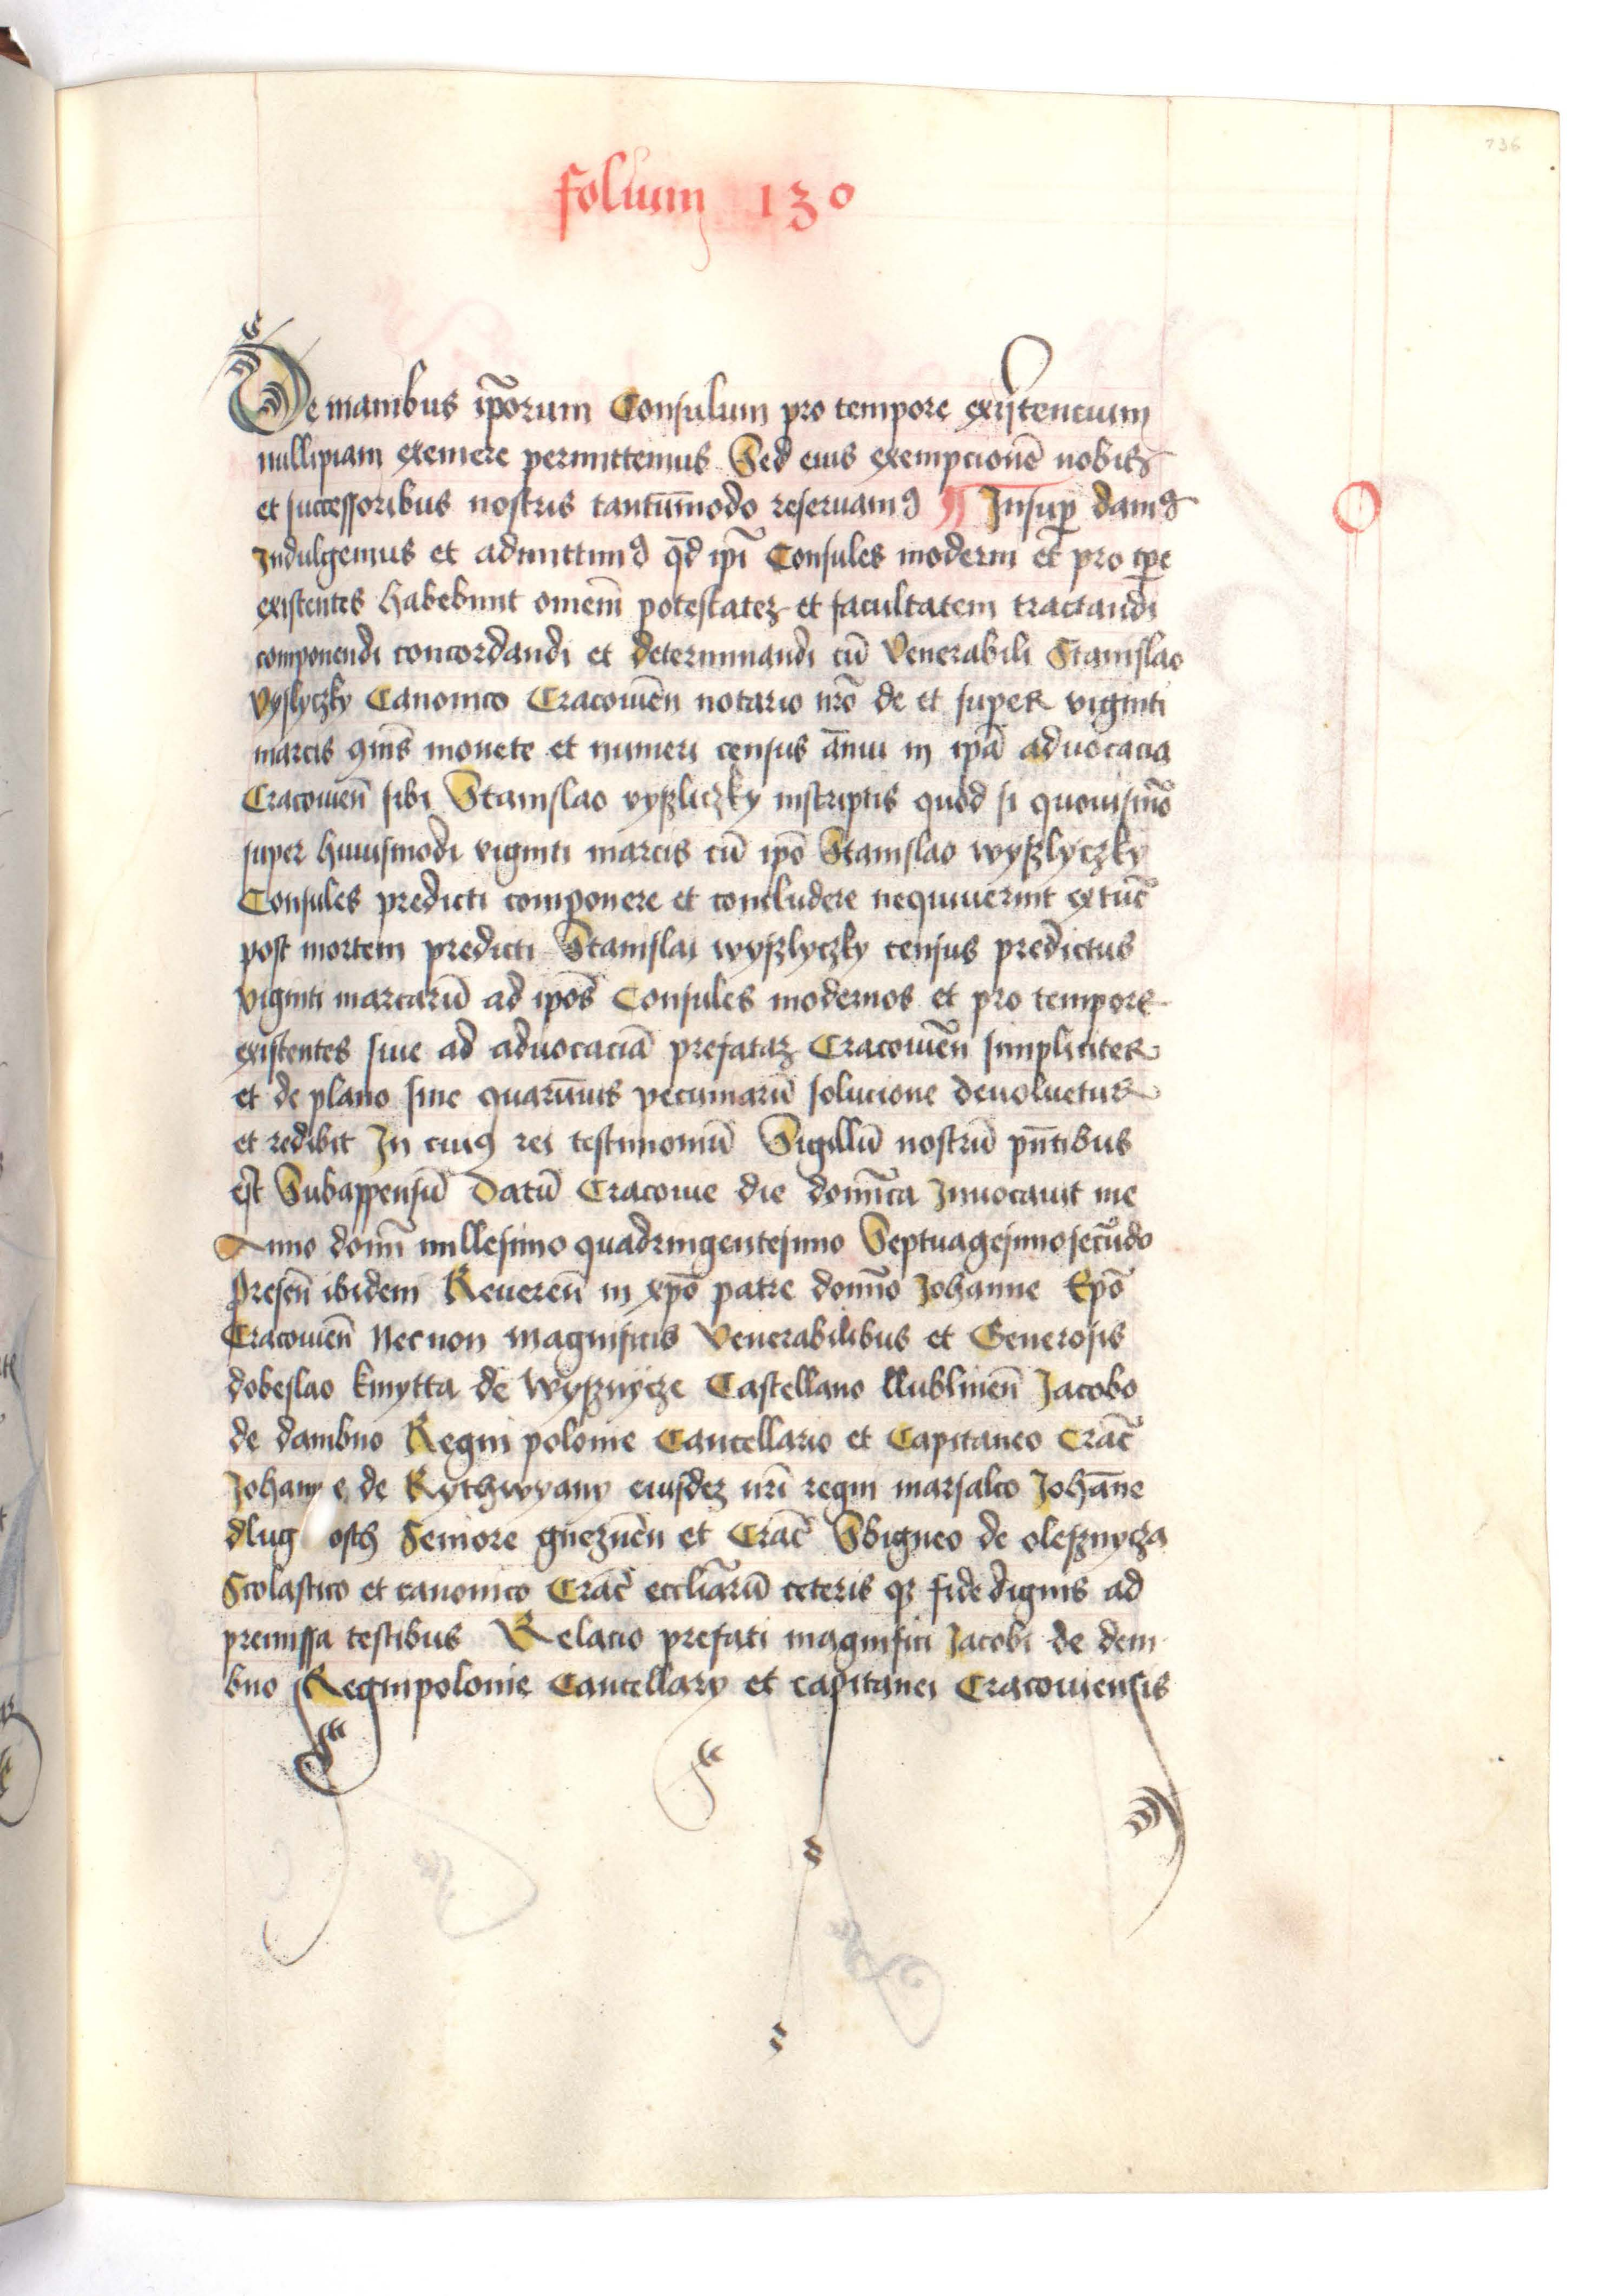 736
folium 130
De manibus ip̄orum Consulum pro tempore exiſtencium
nullipiam exemere permittemus Sed eius exempcionē nobis
et successoribus nostris tantūmodo reseruamꝰ ¶ Insup̄ damꝰ
Indulgemus et admittimꝰ qd̄ ip̄i Consules moderni et pro tp̄e
existentes habebunt omnem̄ potestatez et facultatem tractandi
componendi concordandi et determinandi cū Venerabili Stanislao
Vyslyczky Canonico Cracouien̄ notario nr̄o de et super viginti
marcis ꝯmis monete et numeri census ānui in ip̄a aduocacia
Cracouien̄ sibi Stanislao vyszliczky inscriptis quod si quouismō
super huiusmodi viginti marcis cū ip̄o Stanislao wyszlyczky
Consules predicti componere et concludere nequiuerint extūc
post mortem predicti Stanislai wyszlyczky census predictus
viginti marcarū ad ip̄os Consules modernos et pro tempore
existentes siue ad aduocaciā prefataz Cracouien̄ simpliciter
et de plano sine quarūuis pecuniarū solucione deuoluetur
et redibit In cuiꝰ rei testimoniū Sigillū nostrū pn̄tibus
est Subappensū Datū Cracouie die domīca Inuocauit me
Anno domī millesimo quadringentesimo Septuagesimosecūdo
Presen̄ ibidem Reueren̄ in xp̄o patre domīo Johanne Ep̄o
Cracouien̄ Necnon Magnificis Venerabilibus et Generosis
dobeslao kmytta de Wysznycze Castellano llublinen̄ Jacobo
de dambno Regni polonie Cancellario et Capitaneo Crac̄
Johanne de Rythwyany eiusdez nr̄i regni marsalco Johān̄e
dlug osch Seniore gneznen̄ et Crac̄ Sbigneo de olesznycza
Scolastico et canonico Crac̄ eccliarū ceteris qz fide dignis ad
premissa testibus Relacio prefati magnifici Jacobi de dem
bno Regni polonie Cancellary et capitanei Cracouiensis